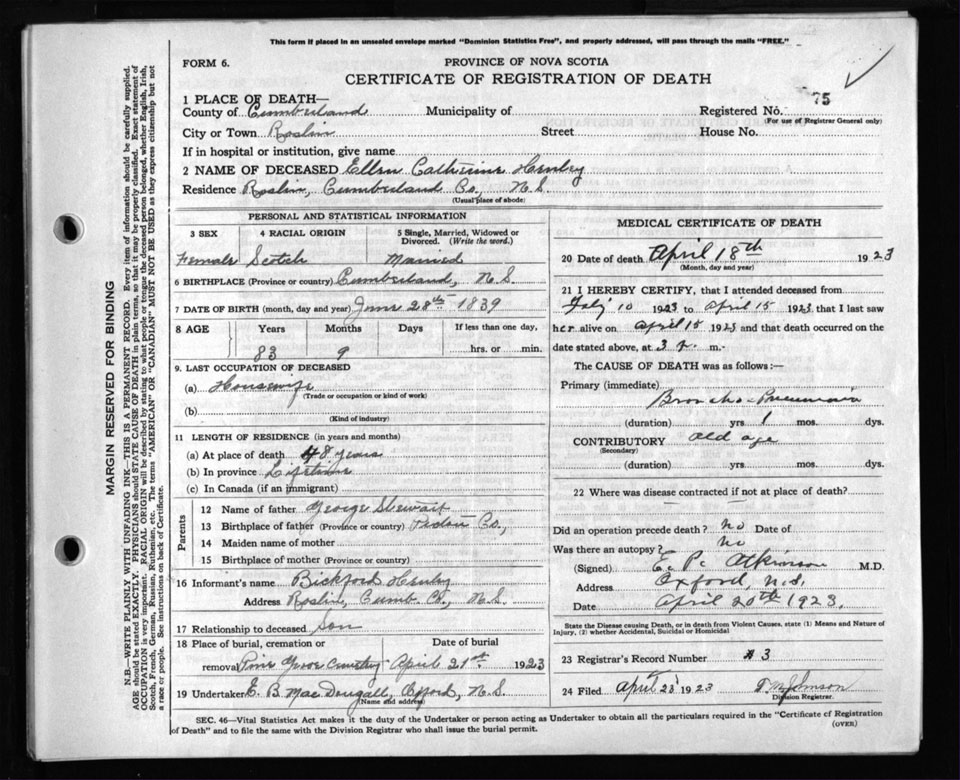 This form if placed in an unsealed envelope marked "Dominion Statistics Free", and properly addressed, will pass through the mails "FREE."
FORM 6.
PROVINCE OF NOVA SCOTIA
CERTIFICATE OF REGISTRATION OF DEATH
75
1 PLACE OF DEATH—
County of Cumberland Municipality of Registered No.
(For use of Registrar General only)
City or Town Roslin Street House No.
If in hospital or institution, give name
2 NAME OF DECEASED Ellen Catherine Henley
Residence Roslin, Cumberland Co, N.S.
(Usual place of abode)
PERSONAL AND STATISTICAL INFORMATION
3 SEX 4 RACIAL ORIGIN 5 Single, Married, Widowed or Divorced. (Write the word.)
Female Scotch Married
6 BIRTHPLACE (Province or country) Cumberland, N.S.
7 DATE OF BIRTH (month, day and year) June 28th 1839
8 AGE Years Months Days If less than one day,
83 9 hrs. or min.
9. LAST OCCUPATION OF DECEASED
(a) Housewife
(Trade or occupation or kind of work)
(b)
(Kind of industry)
11 LENGTH OF RESIDENCE (in years and months)
(a) At place of death 48 years
(b) In province Lifetime
(c) In Canada (if an immigrant)
Parents
12 Name of father George Stewart
13 Birthplace of father (Province or country) Pictou Co,
14 Maiden name of mother
15 Birthplace of mother (Province or country)
16 Informant's name Bickford Henley
Address Roslin, Cumb. Co, N.S.
17 Relationship to deceased Son
18 Place of burial, cremation or removal Date of burial
Pine Grove Cemetery April 21st 1923
19 Undertaker E. B. MacDougall, Oxford, N.S.
(Name and address)
MEDICAL CERTIFICATE OF DEATH
20 Date of death April 18th 1923
(Month, day and year)
21 I HEREBY CERTIFY, that I attended deceased from
10 1923 to April 15 1923 that I last saw
her alive on April 15 1923 and that death occurred on
date stated above, at 3 P. m.
The CAUSE OF DEATH was as follows:—
Primary (immediate)
Broncho-Pneumonia
(duration) yrs 1 mos. dys.
CONTRIBUTORY Old age
(Secondary)
(duration) yrs. mos. dys.
22 Where was disease contracted if not at place of death?
Did an operation precede death? no Date of
Was there an autopsy? No
(Signed) E. P. Atkinson M.D.
Address Oxford, N.S.
Date April 20th 1923.
State the Disease causing Death, or in death from Violent Causes, state (1) Means and Nature of
Injury, (2) whether Accidental, Suicidal or Homicidal
23 Registrar's Record Number #3
24 Filed April 1923 Johnson
Division Registrar.
SEC. 46—Vital Statistics Act makes it the duty of the Undertaker or person acting as Undertaker to obtain all the particulars required in the "Certificate of Registration
of Death" and to file the same with the Division Registrar who shall issue the burial permit.
(OVER)
MARGIN RESERVED FOR BINDING
N.B.—WRITE PLAINLY WITH UNFADING INK—THIS IS A PERMANENT RECORD. Every item of information should be carefully supplied.
AGE should be stated EXACTLY. PHYSICIANS should STATE CAUSE OF DEATH in plain terms, so that it may be properly classified. Exact statement of
OCCUPATION is very important. RACIAL ORIGIN will be described by stating to what people or tongue the deceased person belonged, whether English, Irish,
Scotch, French, German, Russian, Ruthenian, etc. The terms "AMERICAN" OR "CANADIAN" MUST NOT BE USED as they express citizenship but not
a race or people. See instructions on back of Certificate.